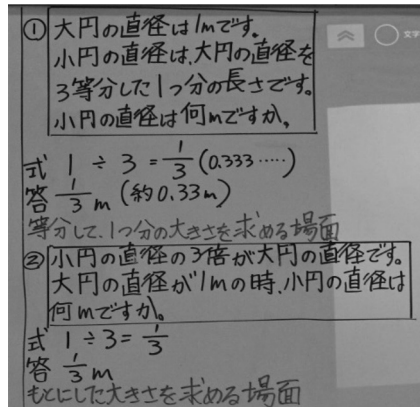 ① 大円の直径は1mです。
小円の直径は、大円の直径を
3等分した1つ分の長さです。
小円の直径は何mですか。
式 1÷3=1/3(0.333……)
答 1/3m(約0.33m)
等分して、1つ分の大きさを求める場面
② 小円の直径の3倍が大円の直径です。
大円の直径が1mの時、小円の直径は
何mですか。
式 1÷3=1/3
答 1/3m
もとにした大きさを求める場面
文字